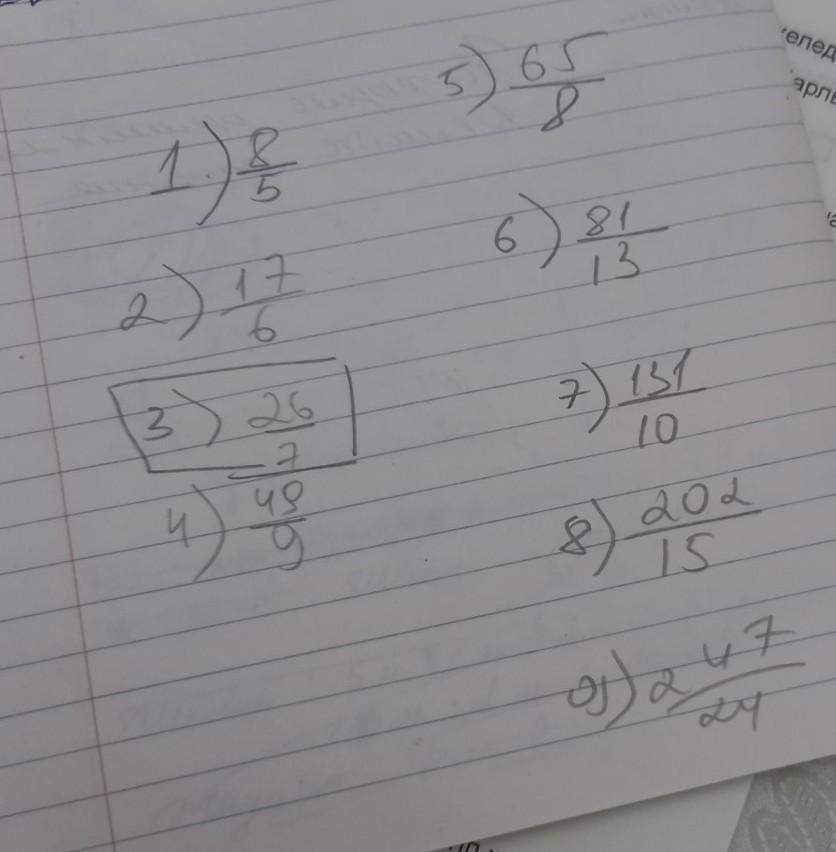 1.) 8/5
2) 17/6
3) 26/7
4) 49/9
5) 65/8
6) 81/13
7) 131/10
8) 202/15
9) 247/24